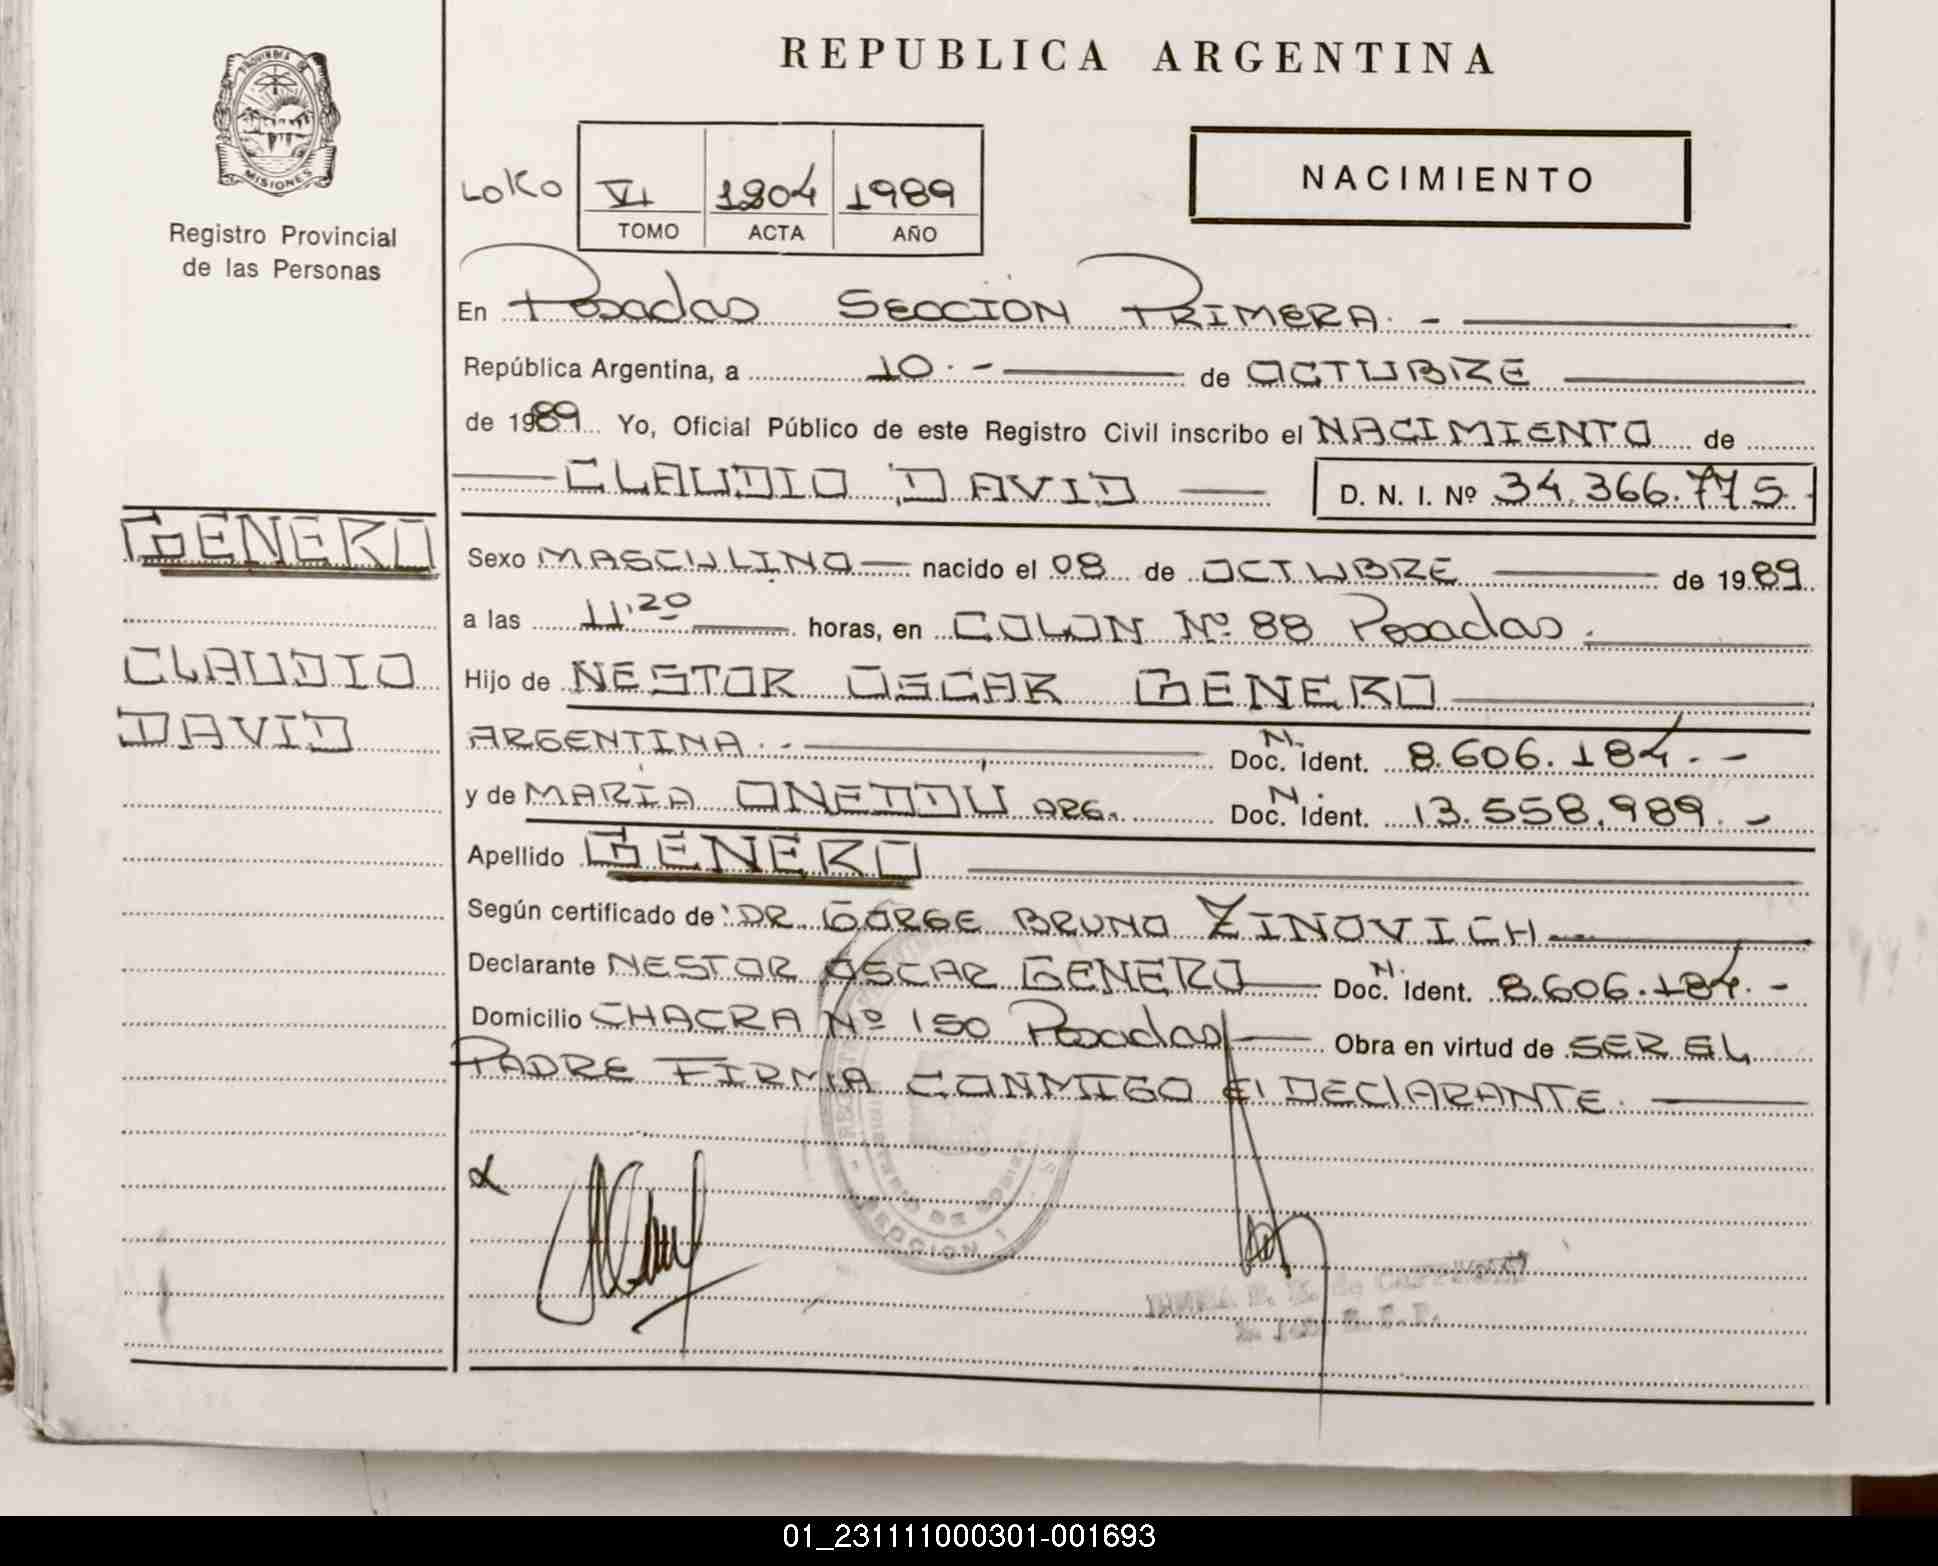 REPUBLICA ARGENTINA
PROVINCIA DE
MISIONES
Registro Provincial
de las Personas
NACIMIENTO
LOKO VI 1904 1989
TOMO ACTA AÑO
En Posadas SECCION PRIMERA.-
República Argentina, a 10.- de OCTUBRE
de 1989 Yo, Oficial Público de este Registro Civil inscribo el NACIMIENTO de
CLAUDIO DAVID D. N. I. Nº 34.366.775.
GENERO
CLAUDIO
DAVID
Sexo MASCULINO nacido el 08 de OCTUBRE de 1989
a las 11'20 horas, en COLON Nº 88 Posadas.
Hijo de NESTOR OSCAR GENERO
ARGENTINA.- Doc. N. Ident. 8.606.184.-
y de MARIA ONEDDU ARG. Doc. N. Ident. 13.558.989.-
Apellido GENERO
Según certificado de: DR. GORGE BRUNO ZINOVICH
Declarante NESTOR OSCAR GENERO Doc. N. Ident. 8.606.184.-
Domicilio CHACRA Nº 150 Posadas Obra en virtud de SER EL
PADRE FIRMA CONMIGO El DEClARANTE.
SECCION 1
01_231111000301-001693